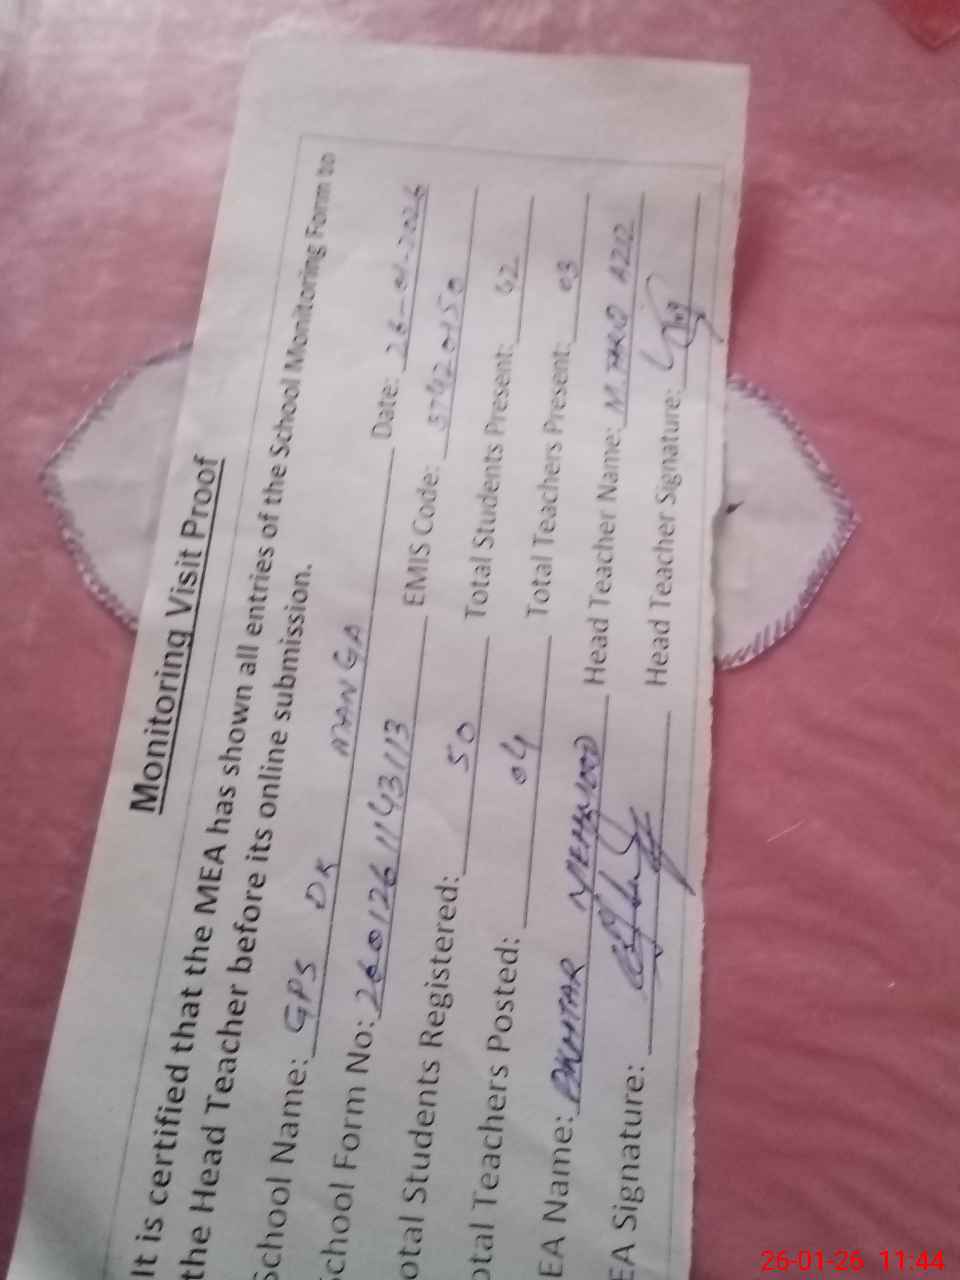 Monitoring Visit Proof
It is certified that the MEA has shown all entries of the School Monitoring Form to
the Head Teacher before its online submission.
School Name: GPS DK MANGA Date: 26-01-2026
School Form No: 2601261143113 EMIS Code: 37420150
otal Students Registered: 50 Total Students Present: 42
otal Teachers Posted: 04 Total Teachers Present: 03
EA Name: AKHTAR MEHMOOD Head Teacher Name: M. TARIQ AZIZ
EA Signature: Head Teacher Signature:
26-01-26 11:44